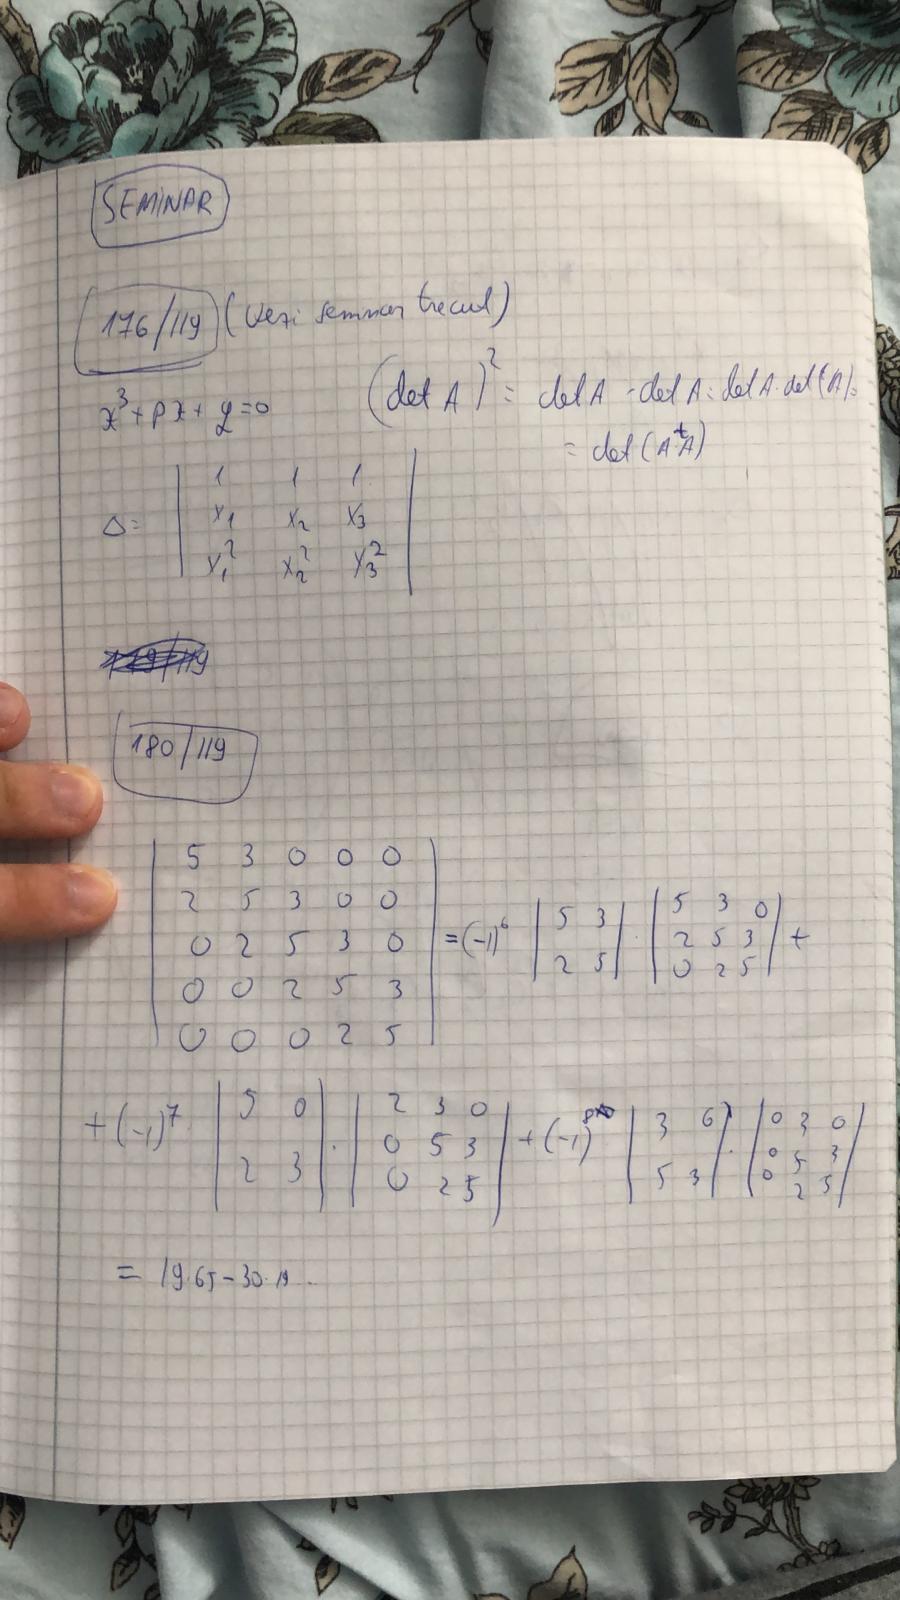 SEMINAR
176/119 (Vezi seminar trecut)
x³ + px + q = 0
(det A)² = det A · det A = det A · det(ᵗA) =
= det(A ᵗA)
Δ = | 1 1 1 |
| x₁ x₂ x₃ |
| x₁² x₂² x₃² |
180/119
| 5 3 0 0 0 |
| 2 5 3 0 0 |
| 0 2 5 3 0 |
| 0 0 2 5 3 |
| 0 0 0 2 5 |
= (-1)⁶ | 5 3 | · | 5 3 0 | +
| 2 5 | | 2 5 3 |
| 0 2 5 |
+ (-1)⁷ | 5 0 | · | 2 3 0 | + (-1)⁸ | 3 0 | · | 0 3 0 |
| 2 3 | | 0 5 3 | | 5 3 | | 0 5 3 |
| 0 2 5 | | 0 2 5 |
= 19·65 - 30·19